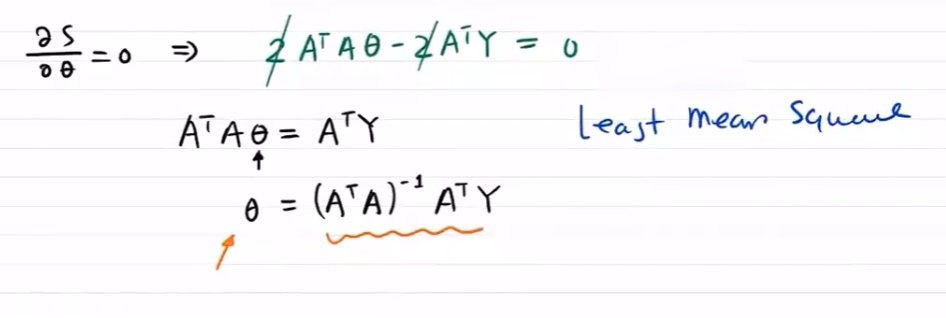 ∂S/∂θ = 0 ⇒ 2AᵀAθ - 2AᵀY = 0
AᵀAθ = AᵀY
Least mean Square
θ = (AᵀA)⁻¹ AᵀY